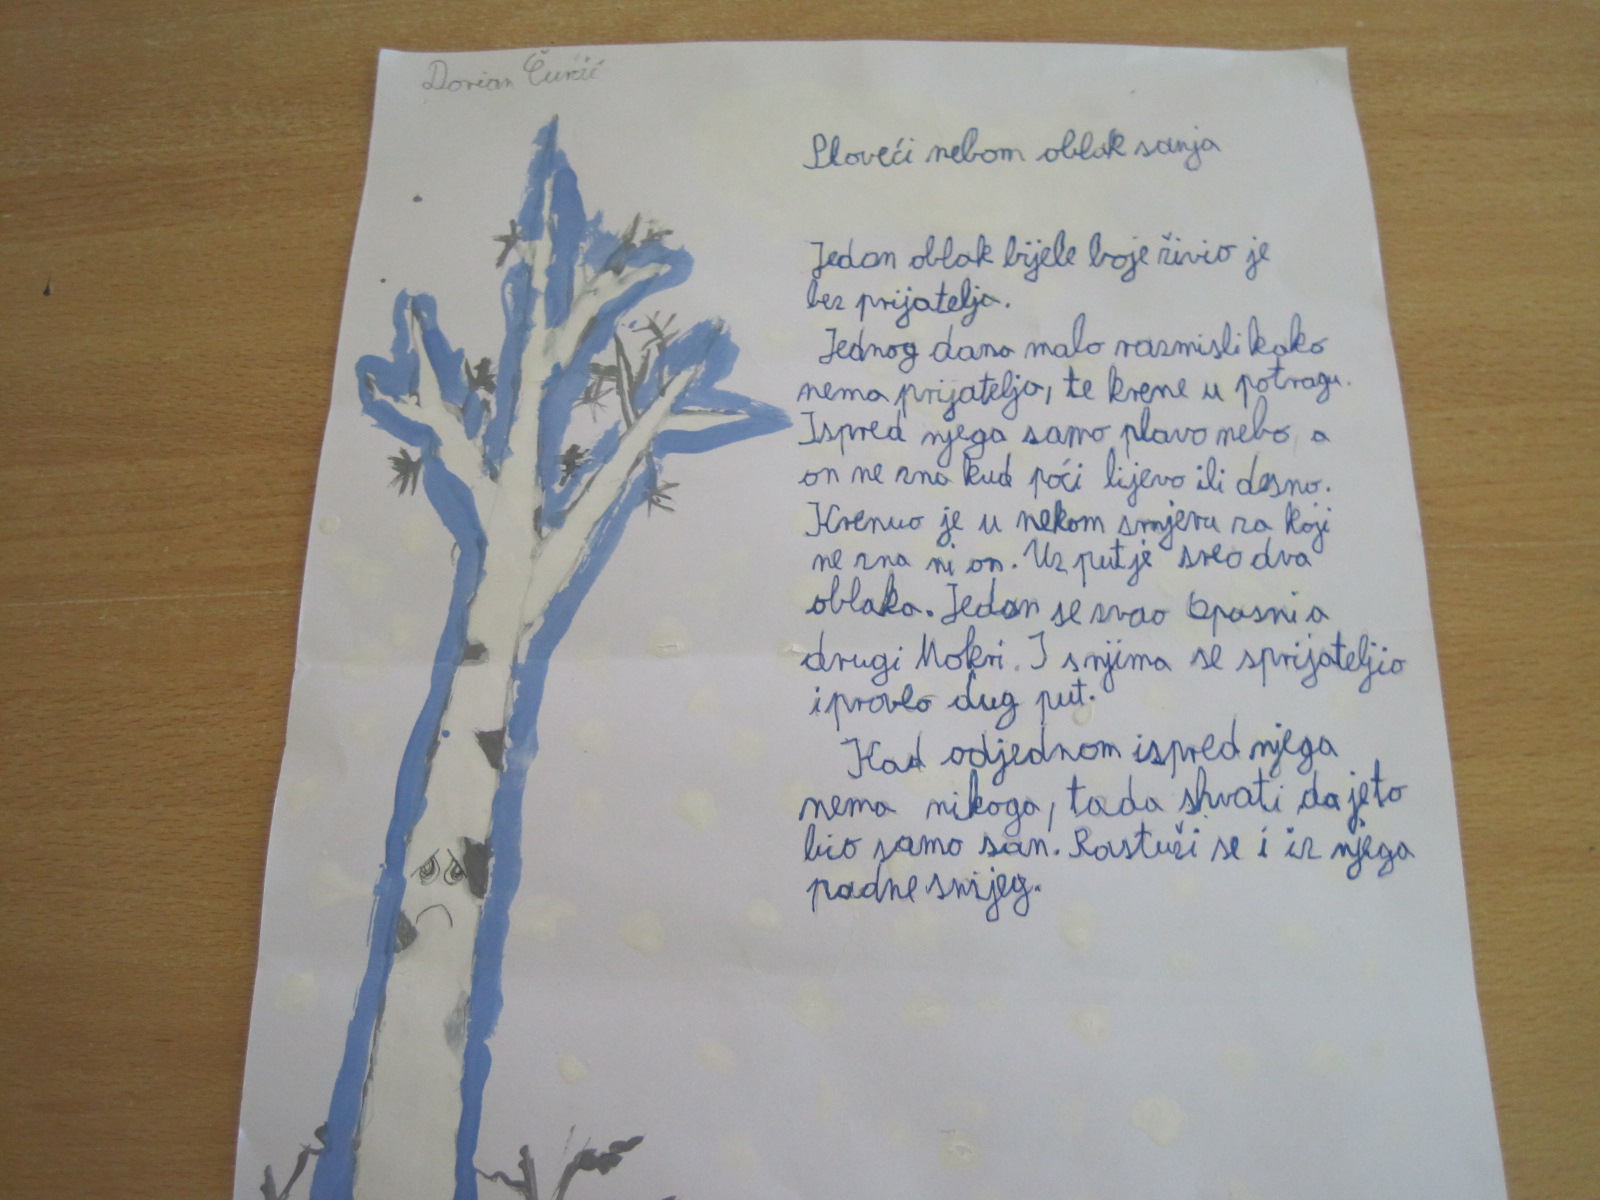 Dorian Čuržić
Ploveći nebom oblak sanja
Jedan oblak bijele boje živio je
bez prijatelja.
Jednog dana malo razmisli kako
nema prijatelja, te krene u potragu.
Ispred njega samo plavo nebo a
on ne zna kud poći lijevo ili desno.
Krenuo je u nekom smjeru za koji
ne zna ni on. Uz put je sreo dva
oblaka. Jedan se zvao Opasni a
drugi Mokri. I s njima se sprijateljio
i proveo dug put.
Kad odjednom ispred njega
nema nikoga, tada shvati da je to
bio samo san. Rastuži se i iz njega
padne snijeg.